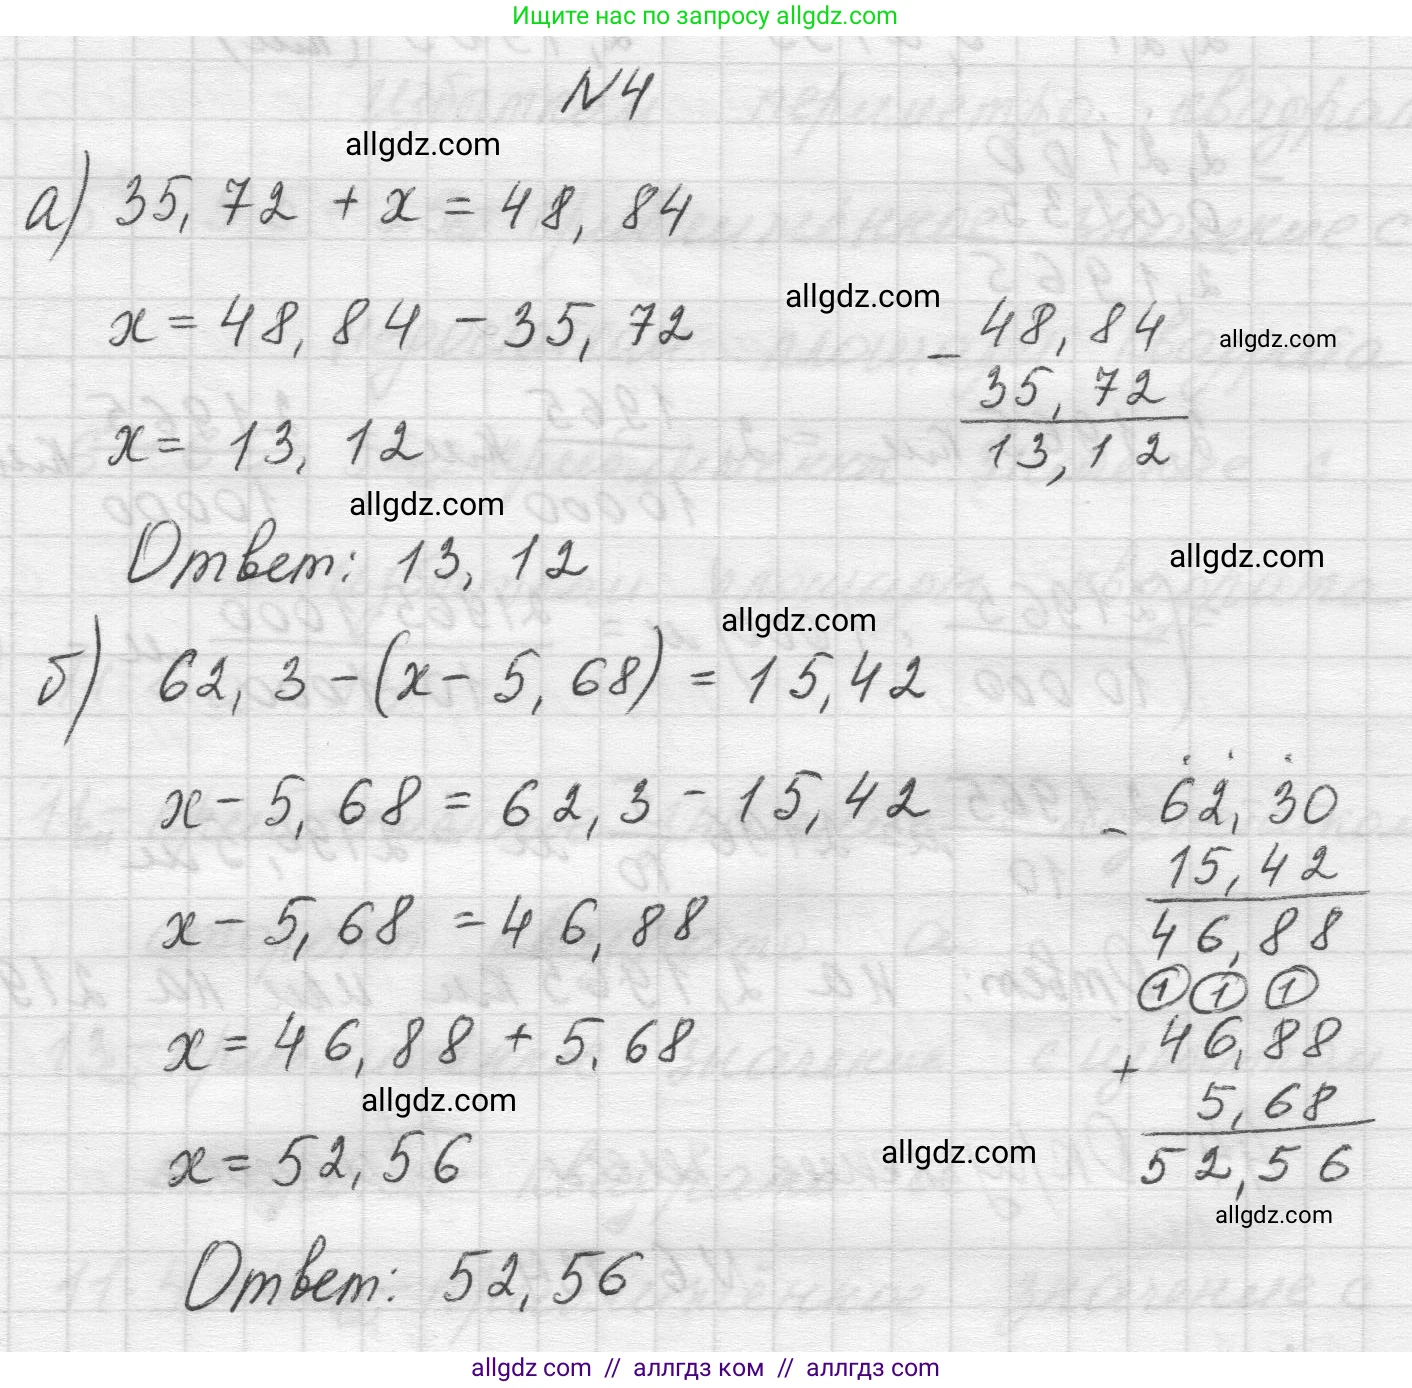 Ищите нас по запросу allgdz.com
N4
allgdz.com
а) 35,72 + x = 48,84
x = 48,84 - 35,72
allgdz.com
- 48,84
35,72
13,12
allgdz.com
x = 13,12
allgdz.com
Ответ: 13,12
allgdz.com
allgdz.com
б) 62,3 - (x - 5,68) = 15,42
x - 5,68 = 62,3 - 15,42
- 62,30
15,42
46,88
x - 5,68 = 46,88
1 1 1
+ 46,88
5,68
52,56
x = 46,88 + 5,68
allgdz.com
x = 52,56
allgdz.com
allgdz.com
Ответ: 52,56
allgdz.com // аллгдз ком // аллгдз.com